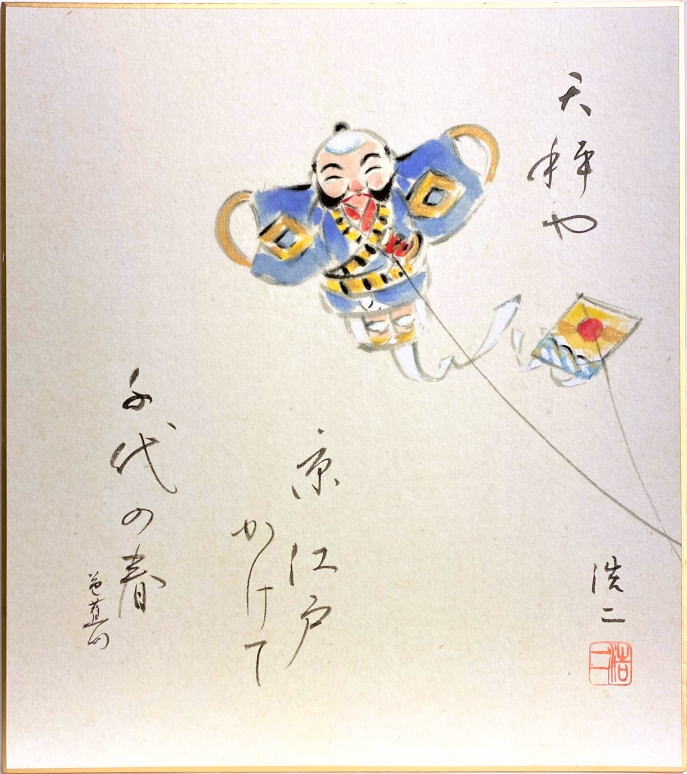 天秤や
京江戸
かけて
千代の春
芭蕉句
浩二
浩二